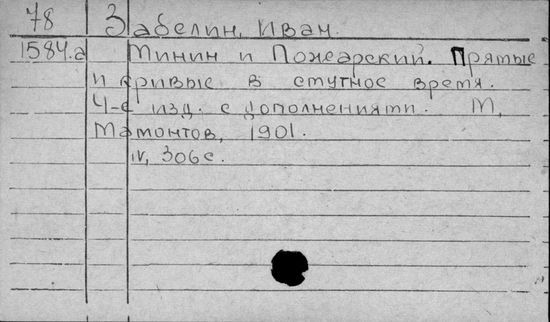 78 Забелин, Иван.
1584.а Минин и Пожарский. Прямые
и кривые в смутное время.
4-е изд. с дополнениями. М,
Мамонтов, 1901.
IV, 306 с.